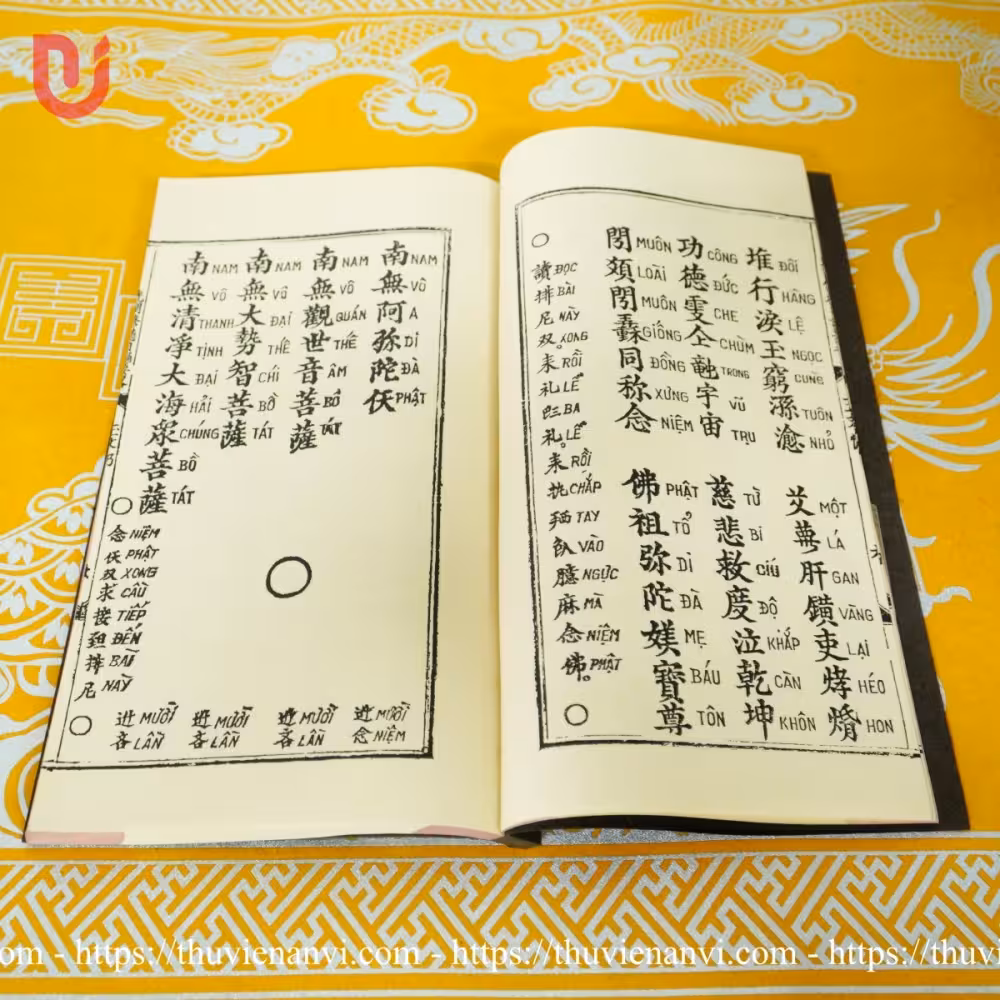 堆 ĐÔI 行 HÀNG 淚 LỆ 玉 NGỌC 窮 CÙNG TUÔN NHỎ
MỘT LÁ 肝 GAN 鐄 VÀNG 吏 LẠI 烤 HÉO HON
功 CÔNG 德 ĐỨC 雯 CHE 仝 CHÙM TRONG 宇 VŨ 宙 TRỤ
慈 TỪ 悲 BI 救 CỨU 度 ĐỘ 泣 KHẮP 乾 CÀN 坤 KHÔN
MUÔN LOÀI MUÔN GIỐNG 同 ĐỒNG 称 XƯNG 念 NIỆM
佛 PHẬT 祖 TỔ 弥 DI 陀 ĐÀ 媄 MẸ 寶 BÁU 尊 TÔN
讀 ĐỌC 排 BÀI 尼 NÀY 双 XONG 耒 RỒI 礼 LỄ BA 礼 LỄ 耒 RỒI 执 CHẮP TAY VÀO 臆 NGỰC 麻 MÀ 念 NIỆM 佛 PHẬT
南 NAM 無 VÔ 阿 A 弥 DI 陀 ĐÀ 仸 PHẬT
南 NAM 無 VÔ 觀 QUÁN 世 THẾ 音 ÂM 菩 BỒ 薩 TÁT
南 NAM 無 VÔ 大 ĐẠI 勢 THẾ 智 CHÍ 菩 BỒ 薩 TÁT
南 NAM 無 VÔ 清 THANH 淨 TỊNH 大 ĐẠI 海 HẢI 眾 CHÚNG 菩 BỒ 薩 TÁT
念 NIỆM 仸 PHẬT 双 XONG 求 CẦU 接 TIẾP ĐẾN 排 BÀI 尼 NÀY
MƯỜI 念 NIỆM
MƯỜI 吝 LẦN
MƯỜI 吝 LẦN
MƯỜI 吝 LẦN
https://thuvienanvi.com - https://thuvienanvi.com